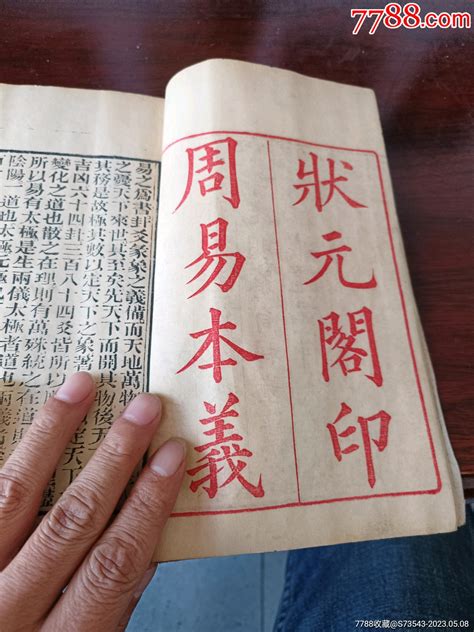 狀元閣印
周易本義
易之爲書卦爻彖象之義備而天地萬物
之憂天下來世其至矣先天下而開其物後天
其務是故極其數以定天下之象著
吉凶六十四卦三百八十四爻皆所以
變化之道也散之在理則有萬殊統之在道
所以易有太極是生兩儀太極者道也
陰陽一道也太極無
7788.com
7788收藏@S73543-2023.05.08